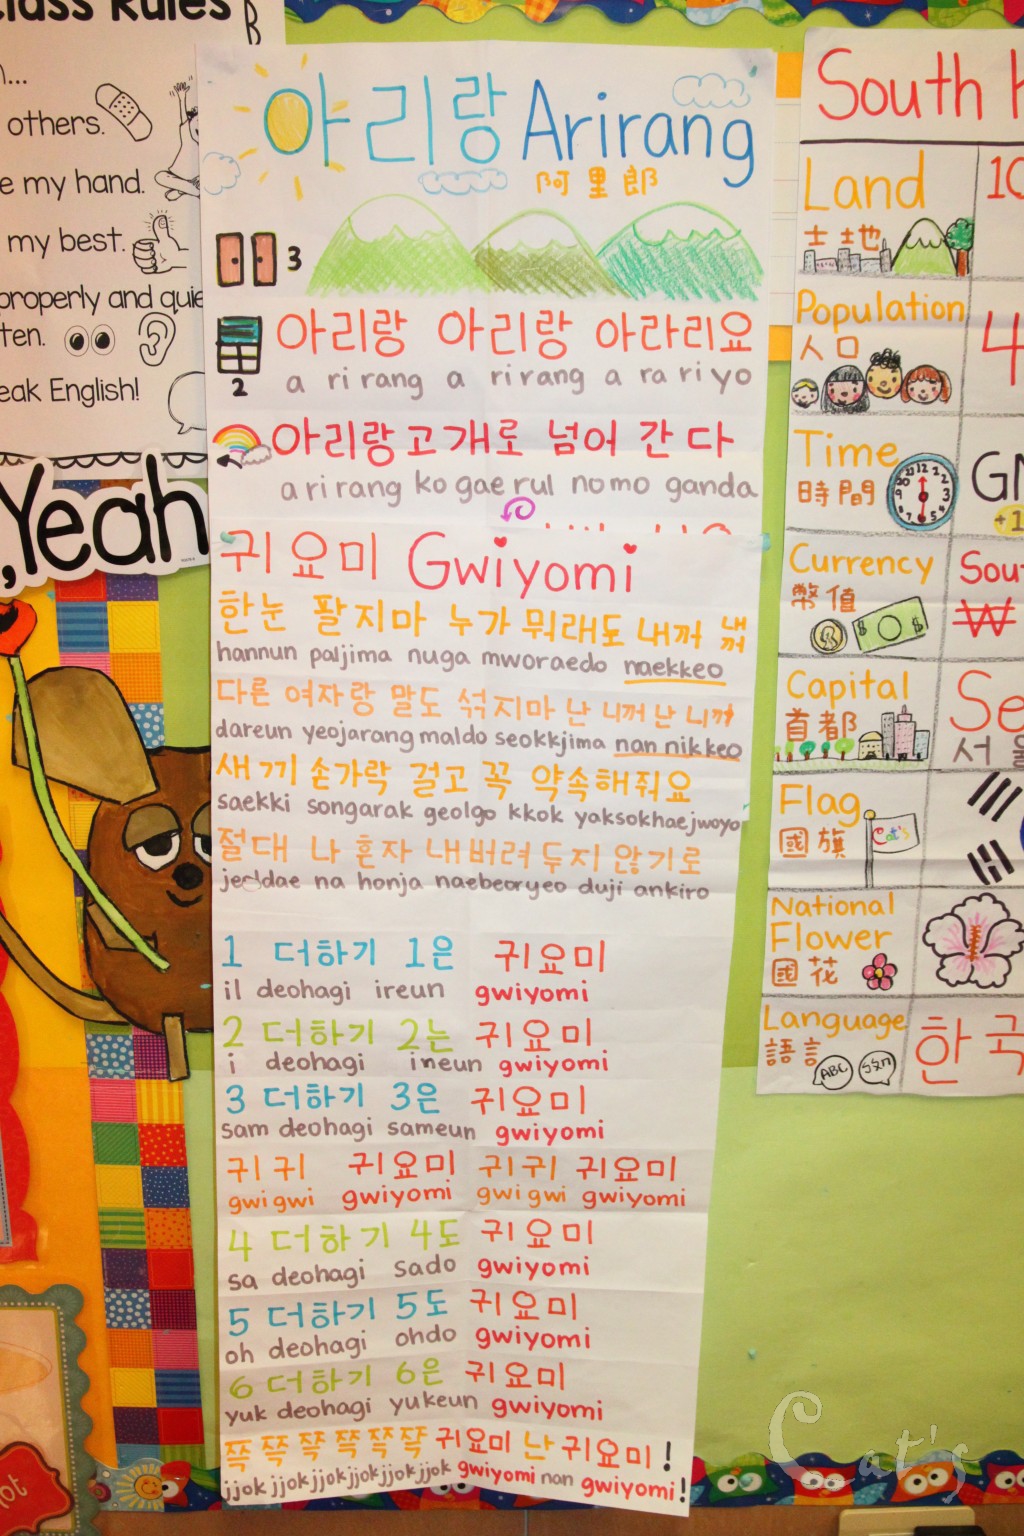 Class Rules
others.
my hand.
my best.
properly and quie
ten.
eak English!
Yeah
아리랑 Arirang
阿里郎
3
2
아리랑 아리랑 아라리요
a ri rang a ri rang a ra ri yo
아리랑고개로 넘어 간다
a ri rang ko gae rul no mo ganda
귀요미 Gwiyomi
한눈 팔지마 누가 뭐래도 내꺼 내꺼
hannun paljima nuga mworaedo naekkeo
다른 여자랑 말도 섞지마 난 니꺼 난 니꺼
dareun yeojarang maldo seokkjima nan nikkeo
새끼 손가락 걸고 꼭 약속해줘요
saekki songarak geolgo kkok yaksokhaejwoyo
절대 나 혼자 내버려 두지 않기로
jeoldae na honja naebeoryeo duji ankiro
1 더하기 1은 귀요미
il deohagi ireun gwiyomi
2 더하기 2는 귀요미
i deohagi ineun gwiyomi
3 더하기 3은 귀요미
sam deohagi sameun gwiyomi
귀귀 귀요미 귀귀 귀요미
gwi gwi gwiyomi gwi gwi gwiyomi
4 더하기 4도 귀요미
sa deohagi sado gwiyomi
5 더하기 5도 귀요미
oh deohagi ohdo gwiyomi
6 더하기 6은 귀요미
yuk deohagi yukeun gwiyomi
쪽 쪽 쪽 쪽 쪽 쪽 귀요미 난 귀요미!
jjok jjok jjok jjok jjok jjok gwiyomi nan gwiyomi!
South
Land 10
土地
Population 4
人口
Time GM
時間 +1
Currency Sou
幣值 ₩
Capital Se
首都 서울
Flag
國旗 Cat's
National
Flower
國花
Language 한국
語言 ABC ㄅㄆㄇ
Cat's